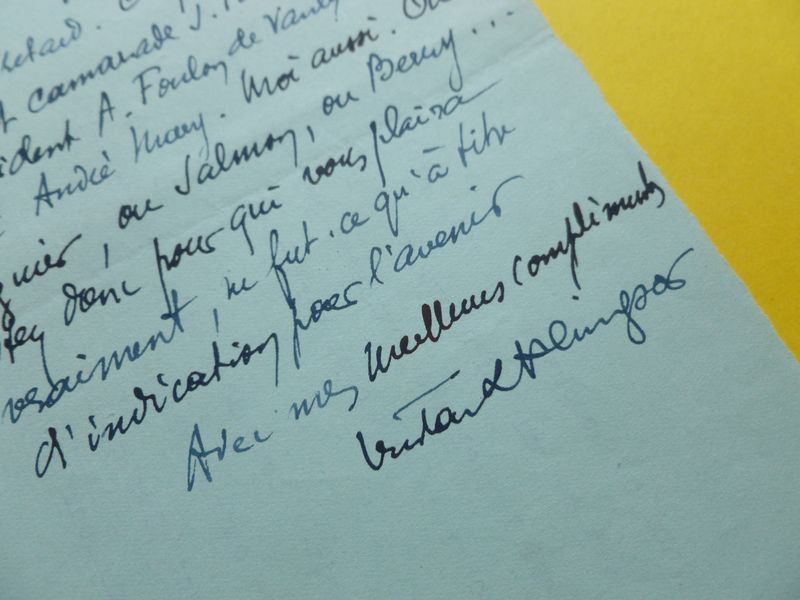 retard.
camarade J.
ident A. Foulon de Vaulx
André Mary. Moi aussi. Ou
gnier, ou Salmon, ou Berry...
tez donc pour qui vous plaira
vraiment, ne fut-ce qu'à titre
d'indication pour l'avenir
Avec mes meilleurs compliments
Tristan Klingsor